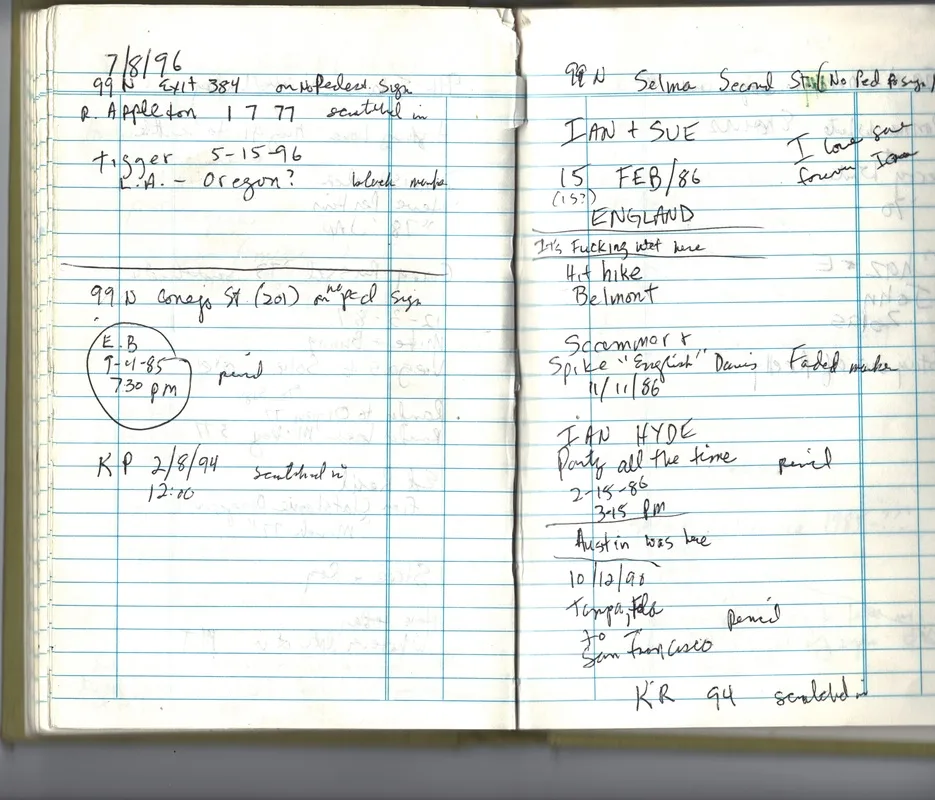 7/8/96
99 N Exit 384 on No Pedest. Sign
R. Appleton 1 7 77 scratched in
Tigger 5-15-96
L.A. - Oregon? black marker
99 N Conejo St. (201) on no ped sign
E.B
9-4-85
730 pm
pencil
K P 2/8/94 scratched in
12:00
99 N Selma Second St No Ped sign
IAN + SUE
I love sue
forever Ian
15 FEB/86
(15?)
ENGLAND
It's Fucking wet here
Hit hike
Belmont
Scammort
Spike "English" Davis Faded marker
11/11/86
IAN HYDE
Party all the time pencil
2-15-86
3:15 pm
Austin was here
10/12/90
Tampa, Fla
to pencil
San Francisco
KR 94 scratched in